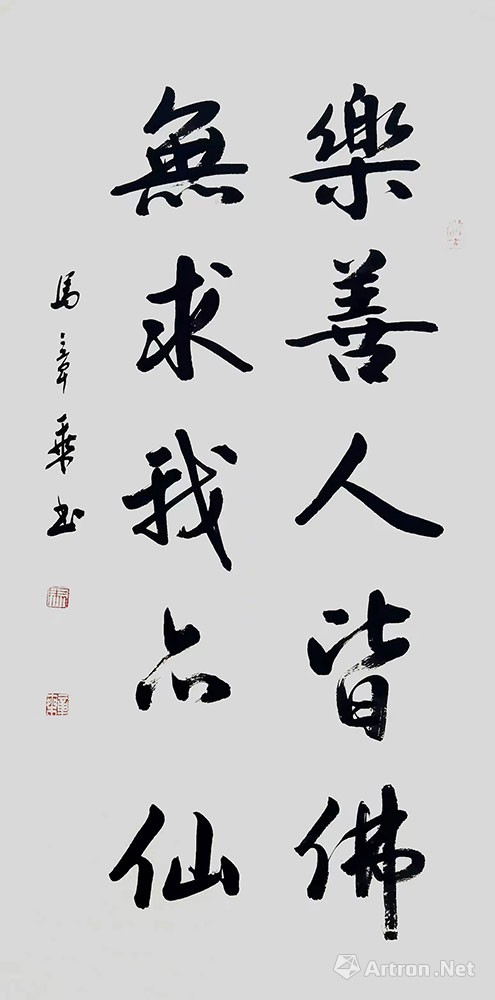 樂善人皆佛
無求我亦仙
馬章乘书
Artron.Net